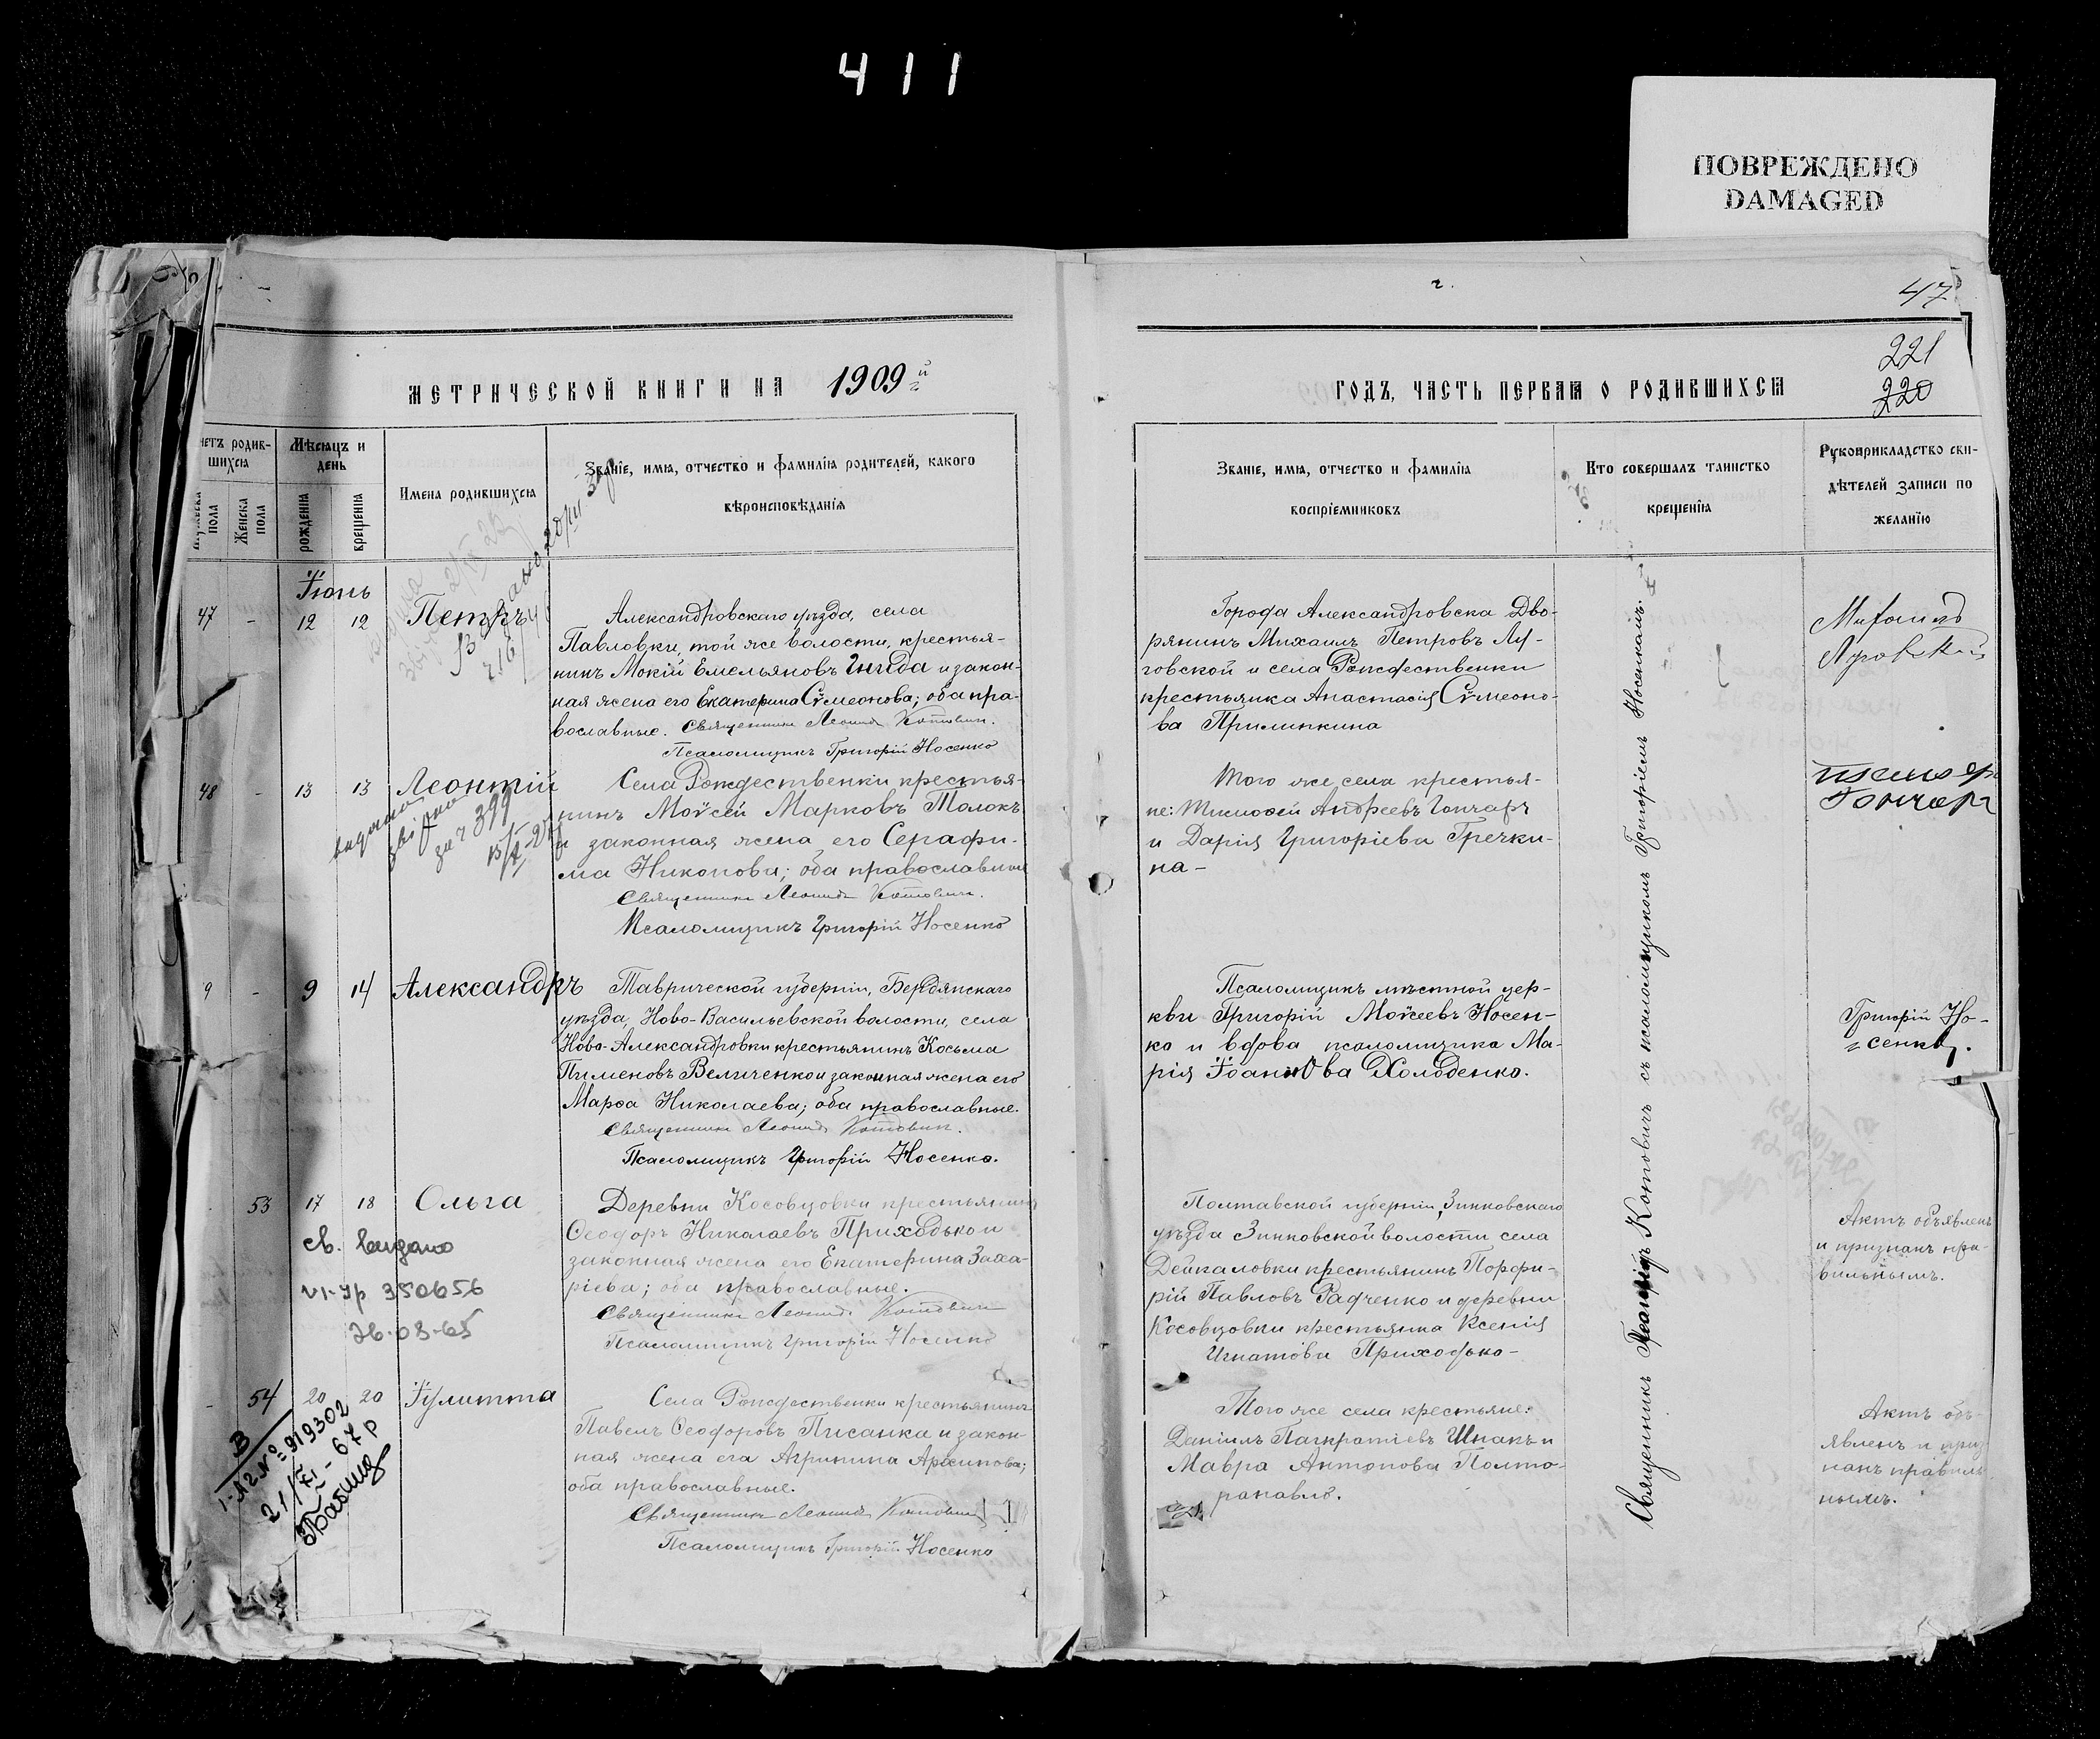 411
ПОВРЕЖДЕНО
DAMAGED
47
221
220
МЕТРИЧЕСКОЙ КНИГИ НА 1909й
ГОДЪ, ЧАСТЬ ПЕРВАЯ О РОДИВШИХСЯ
четъ родив-
шихся
Мѣсяцъ и
день
пола
Женска
пола
рожденія
крещенія
Имена родившихся
Званіе, имя, отчество и фамилія родителей, какого
вѣроисповѣданія
Званіе, имя, отчество и фамилія
воспріемниковъ
Кто совершалъ таинство
крещенія
Рукоприкладство сви-
дѣтелей записи по
желанію
Іюнь
47 - 12 12 Петръ
Александровскаго уѣзда, села
Павловки, той же волости, крестья-
нинъ Мокій Емельяновъ Гнида и закон-
ная жена его Екатерина Сѵмеонова; оба пра-
вославные. Священникъ Леонидъ Котовичъ.
Псаломщикъ Григорій Носенко
Города Александровска Дво-
рянинъ Михаилъ Петровъ Лу-
говской и села Рождественки
крестьянка Анастасія Сѵмеоно-
ва Прилипкина
Михаилъ
48 - 13 13 Леонтій
видано
за ч 399
Села Рождественки крестья-
нинъ Моѵсей Марковъ Толокъ
и законная жена его Серафи-
ма Никонова; оба православные
Священникъ Леонидъ Котовичъ.
Псаломщикъ Григорій Носенко
Того же села крестья-
не: Тимоѳей Андреевъ Гончаръ
и Дарія Григоріева Гречки-
на-
Гончаръ
9 - 9 14 Александръ
Таврической губерніи, Бердянскаго
уѣзда, Ново-Васильевской волости, села
Ново-Александровки крестьянинъ Косьма
Пименовъ Величенко и законная жена его
Марѳа Николаева; оба православные.
Священникъ Леонидъ Котовичъ.
Псаломщикъ Григорій Носенко.
Псаломщикъ мѣстной цер-
кви Григорій Моѵсеевъ Носен-
ко и вдова псаломщика Ма-
рія Іоаннова Холоденко.
Григорій Но-
сенко.
53 17 18 Ольга
св. видано
VI-УР 350656
26.08.65
Деревни Косовцовки крестьянинъ
Ѳеодоръ Николаевъ Приходько и
законная жена его Екатерина Заха-
ріева; оба православные.
Священникъ Леонидъ Котовичъ
Псаломщикъ Григорій Носенко
Полтавской губерніи, Зинковскаго
уѣзда Зинковской волости села
Дейкаловки крестьянинъ Порфи-
рій Павловъ Радченко и деревни
Косовцовки крестьянка Ксенія
Игнатова Приходько-
Актъ объявленъ
и признанъ пра-
вильнымъ.
- 54 20 20 Іулитта
№ 919302
21/XI-67р
Села Рождественки крестьянинъ
Павелъ Ѳеодоровъ Писанка и закон-
ная жена его Агрипина Архипова;
оба православные.
Священникъ Леонидъ Котовичъ
Псаломщикъ Григорій Носенко
Того же села крестьяне:
Даніилъ Панкратіевъ Шпакъ и
Мавра Антонова Полто-
рапавло.
Актъ объ-
явленъ и приз-
нанъ правиль-
нымъ.
Священникъ Леонидъ Котовичъ съ псаломщикомъ Григоріемъ Носенкомъ